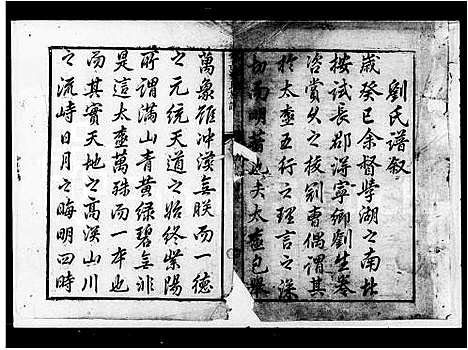 劉氏譜叙
歲癸巳余督學湖之南北
按試長郡得寧卿劉生
咨賞久之拔劉曹偶謂其
於太極五行之理言之深
切而明著也夫太極包舉
萬象雖冲漠無朕而一德
之元統天道之始終紫陽
所謂滿山青黃綠碧無非
是這太極萬殊而一本也
而其實天地之高深山川
之流峙日月之晦明四時